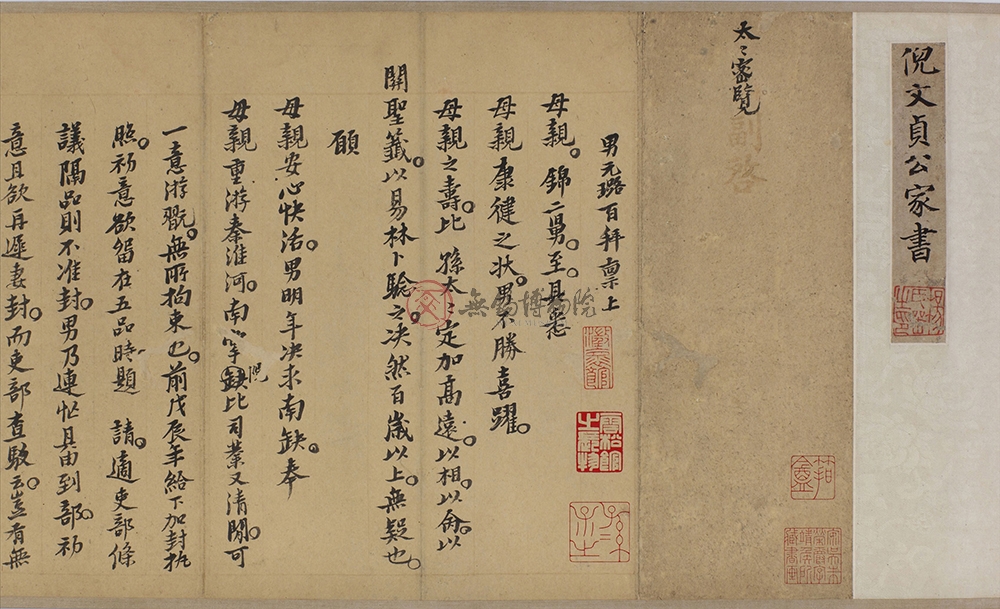 倪文貞公家書
太〻密覽
副啓
男元璐百拜稟上
母親。錦二舅。至。具悉
母親康健之狀。男不勝喜躍。
母親之壽。比 孫太〻定加高遠。以相。以命。以
關聖籤。以易林卜驗之。決然百歲以上。無疑也。
願
母親安心快活。男明年決求南缺。奉
母親重游秦淮河。南掌缺比司業又清閒。可
一意游翫。無所拘束也。前戊辰年給下加封執
照。初意欲留在五品時題 請。適吏部條
議隔品則不准封。男乃連忙具由到部。初
意且欲再遲妻封。而吏部查駁云豈有無
無錫博物院